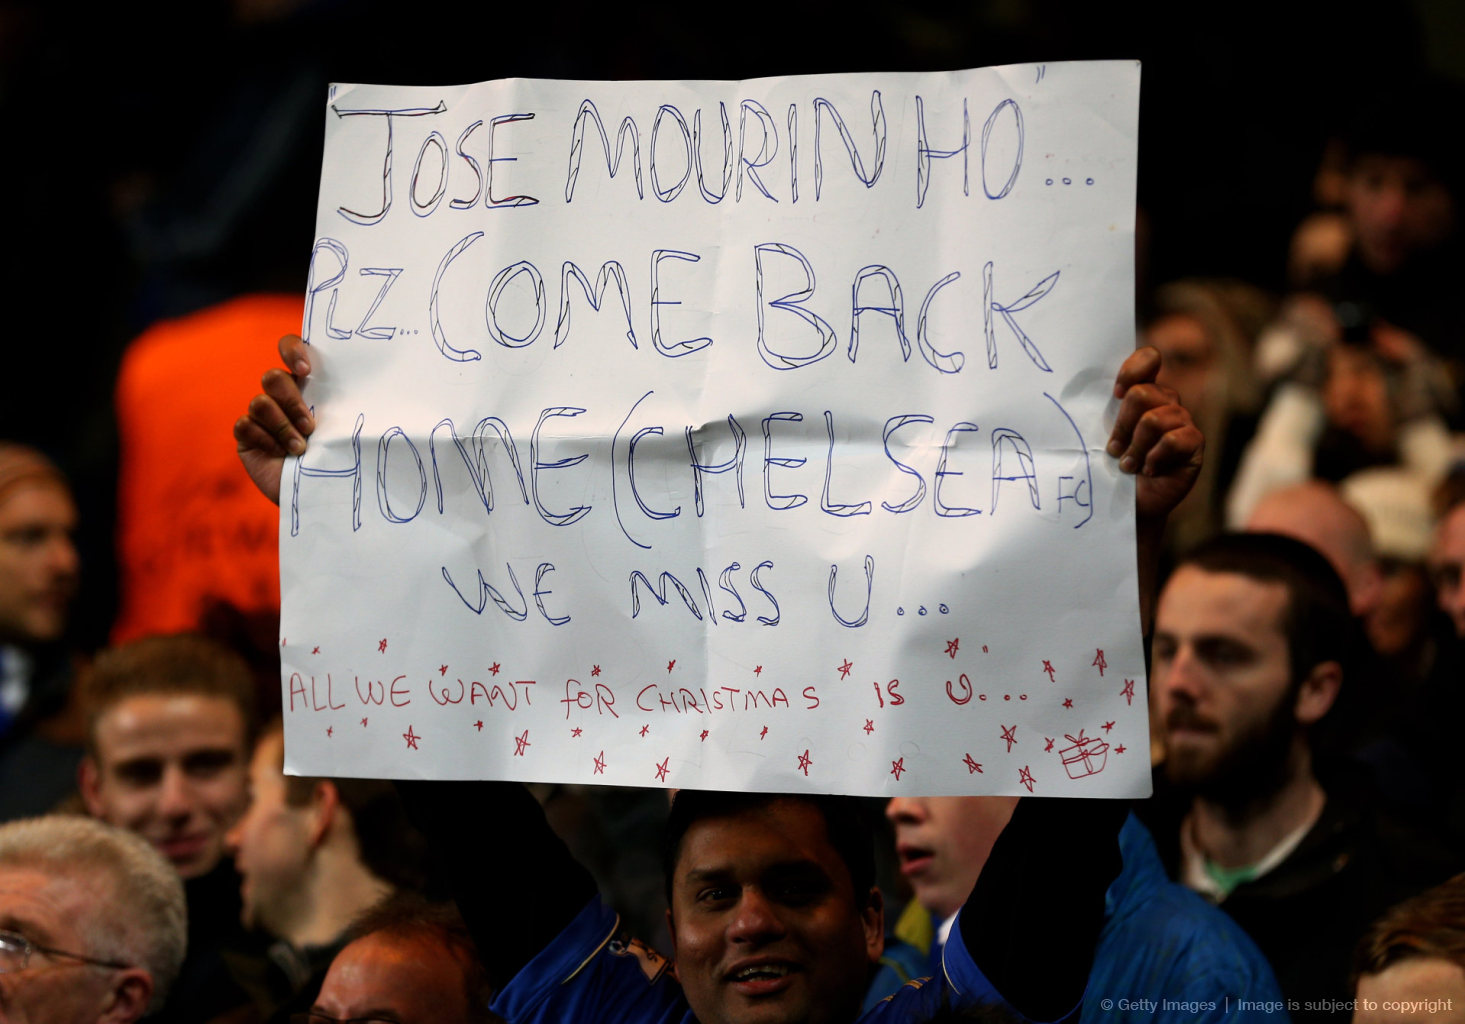 "JOSE MOURINHO"...
PLZ... COME BACK
HOME (CHELSEA FC)
WE MISS U...
ALL WE WANT FOR CHRISTMAS IS U...
© Getty Images | Image is subject to copyright